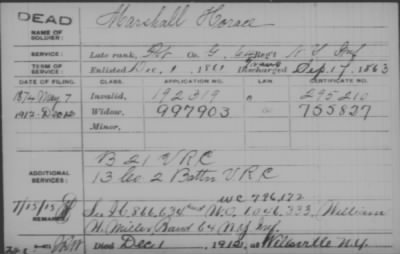 DEAD
NAME OF SOLDIER:
Marshall Horace
SERVICE:
Late rank, Pvt Co. G, 64 Reg't N.Y. Inf
TERM OF SERVICE:
Enlisted Dec. 1, 1861 Discharged Sep. 17, 1863
DATE OF FILING. CLASS. APPLICATION NO. LAW. CERTIFICATE NO.
1874 May 7 Invalid, 192319 295210
1912 Widow, 997903 755837
Minor,
ADDITIONAL SERVICES:
B 21 V.R.C
13 Co 2 Battn V.R.C
WC 796,172
REMARKS:
7/15/15 See 866,634 and W.O. 1,046,333, William
H. Miller Band 64 N.Y. Inf.
Died Dec 1, 1912, at Wellsville N.Y.